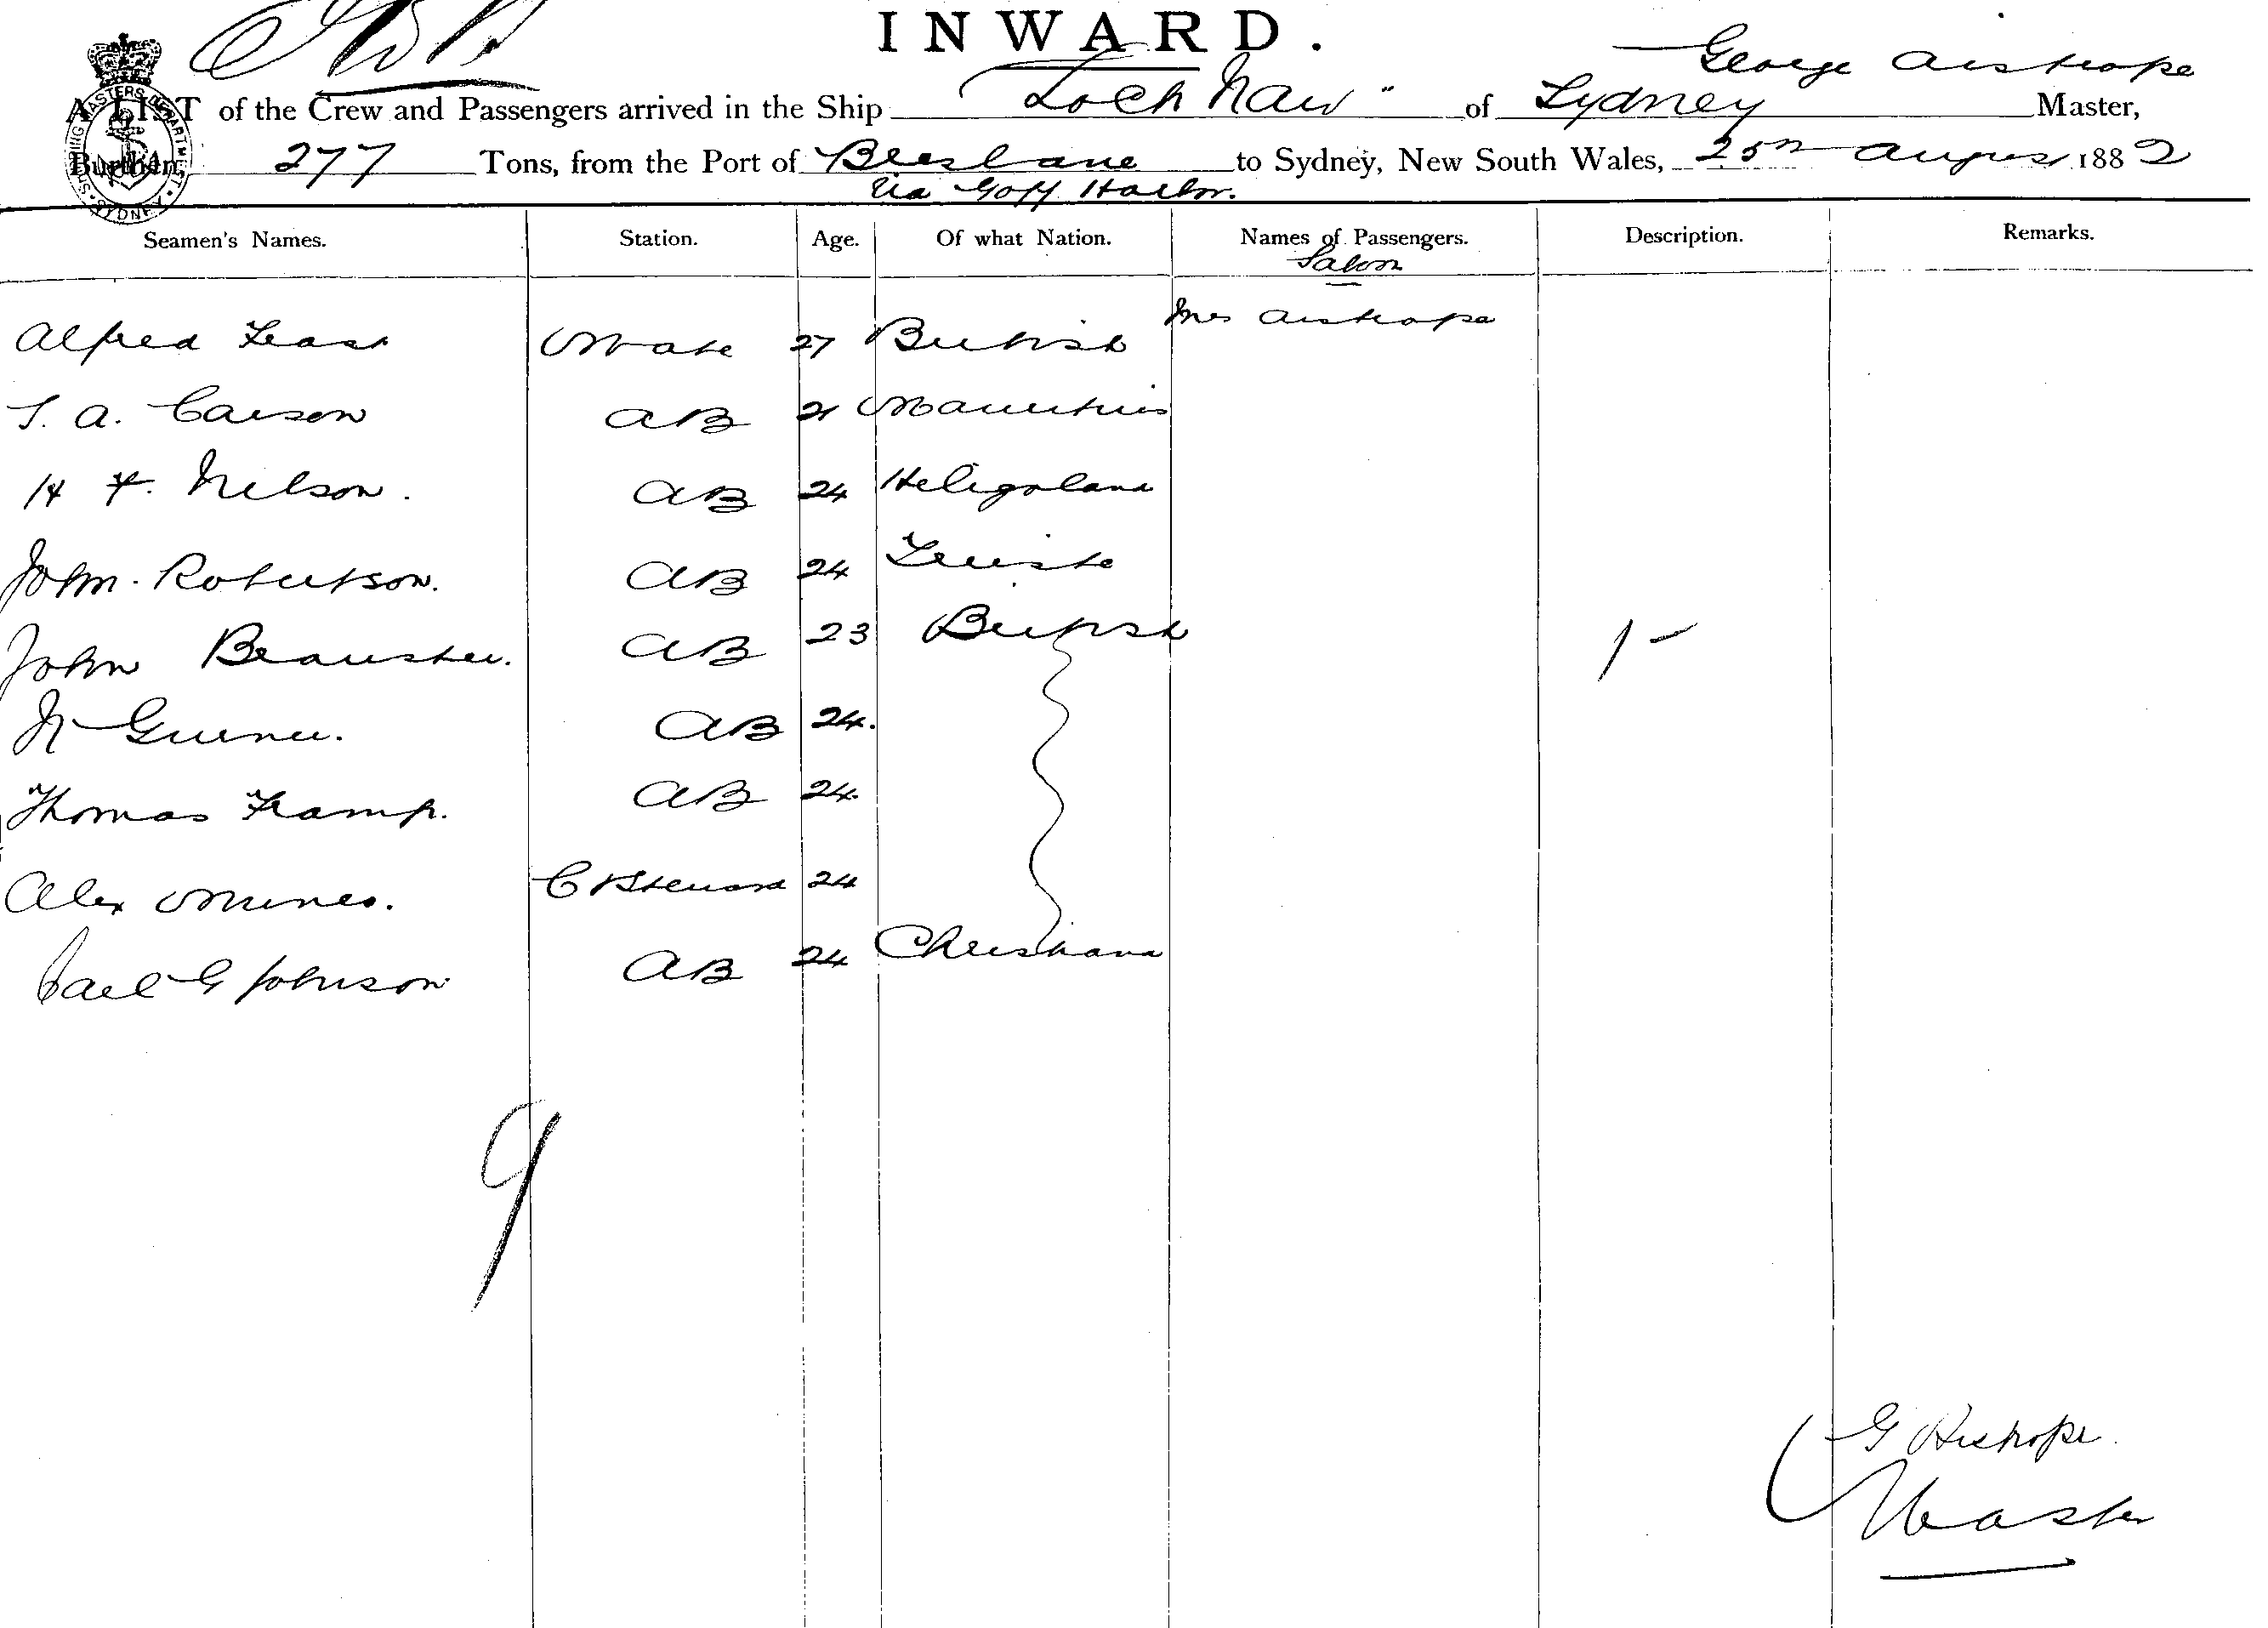 INWARD.
George Aistrope
A LIST of the Crew and Passengers arrived in the Ship "Loch Naw" of Sydney Master,
Burthen 277 Tons, from the Port of Brisbane to Sydney, New South Wales, 25th August 1882
Via Goff Harbr.
SHIPPING MASTERS DEPARTMENT SYDNEY
Seamen's Names. Station. Age. Of what Nation. Names of Passengers. Description. Remarks.
Saloon
Mrs Aistrope
Alfred Mate 27 British
T. A. Carson AB 21 Mauritius
H F. Nelson. AB 24 Heligoland
John Robertson. AB 24 Trieste
John AB 23 British 1 -
N AB 24.
Thomas Framp. AB 24.
Alex C & Steward 24
Carl G Johnson AB 24 Christiana
9
G Aistrope.
Master